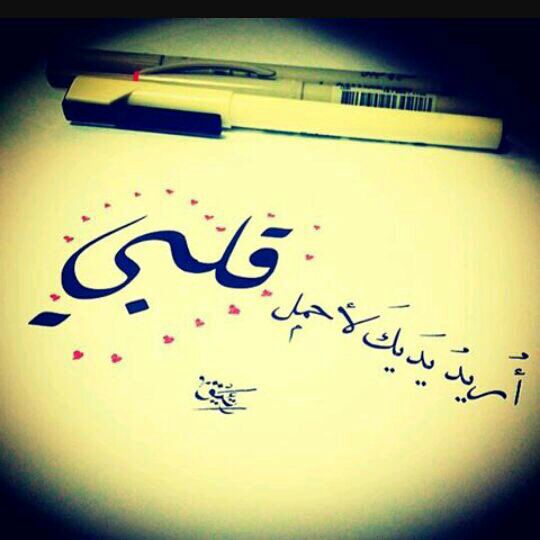 أُريدُ يَديَكَ لأحمل
قلبي